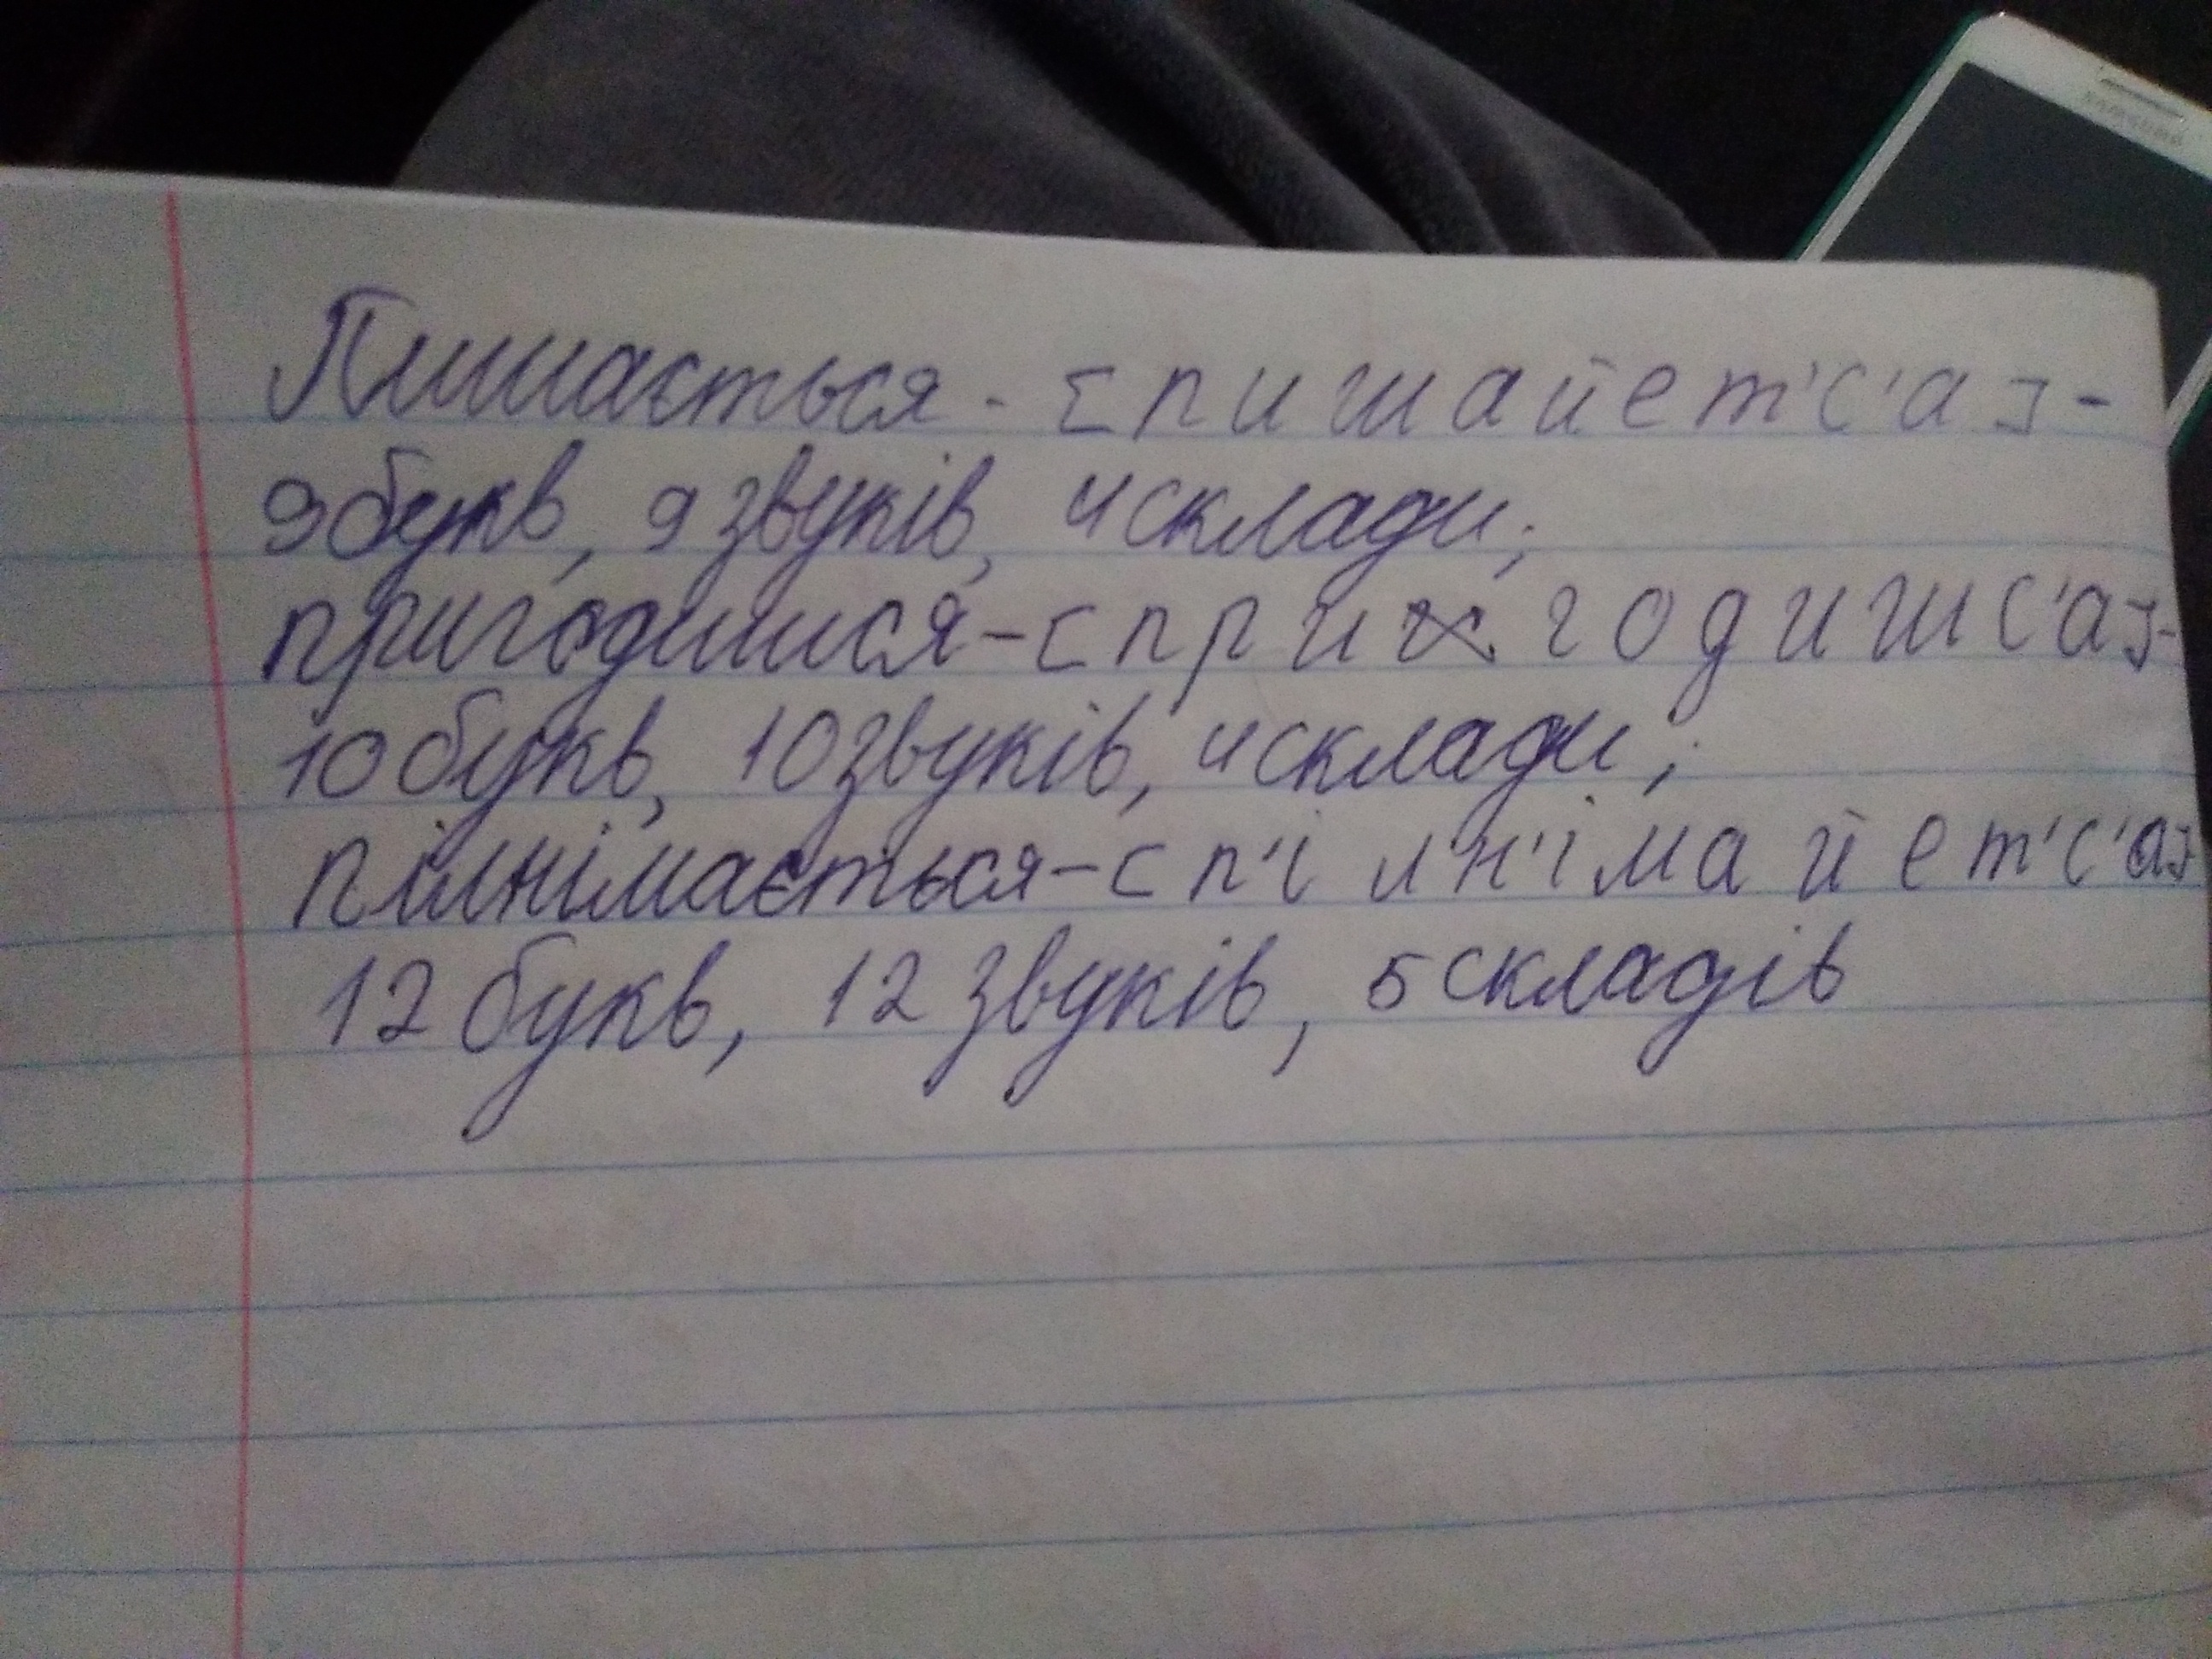 Пишається - [пишайет'с'а]-
9 букв, 9 звуків, 4 склади;
пригодишся-[пригодишс'а]-
10 букв, 10 звуків, 4 склади;
пілнімається-[п'ілн'імайет'с'а]-
12 букв, 12 звуків, 5 складів